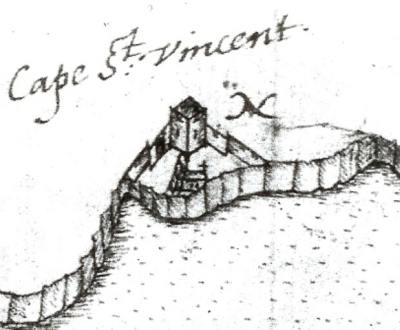 Cape St. Vincent.
N